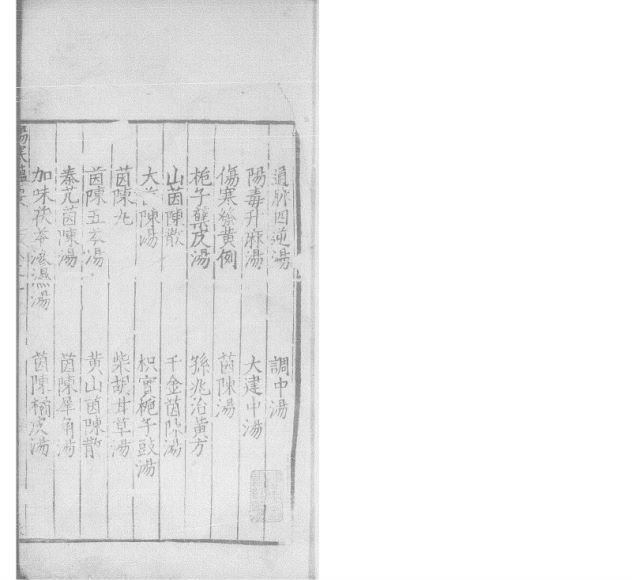 通脉四逆湯　調中湯
陽毒升麻湯　大建中湯
傷寒發黃例　茵陳湯
梔子蘗皮湯　孫兆治黃方
山茵陳散　千金茵陳湯
大茵陳湯　枳實梔子豉湯
茵陳丸　柴胡甘草湯
茵陳五苓湯　黃山茵陳散
秦艽茵陳湯　茵陳犀角湯
加味茯苓滲濕湯　茵陳橘皮湯